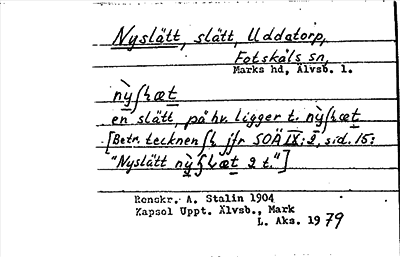 Nyslätt, slätt, Uddatorp,
Fotskäls sn,
Marks hd, Älvsb. l.
en slätt, på hv. ligger t.
[Betr. tecknen ſh jfr SOÄ IX:2, sid. 15:
"Nyslätt 2 t."]
Renskr. A. Stalin 1904
Kapsel Uppt. Älvsb., Mark
L. Aks. 1979